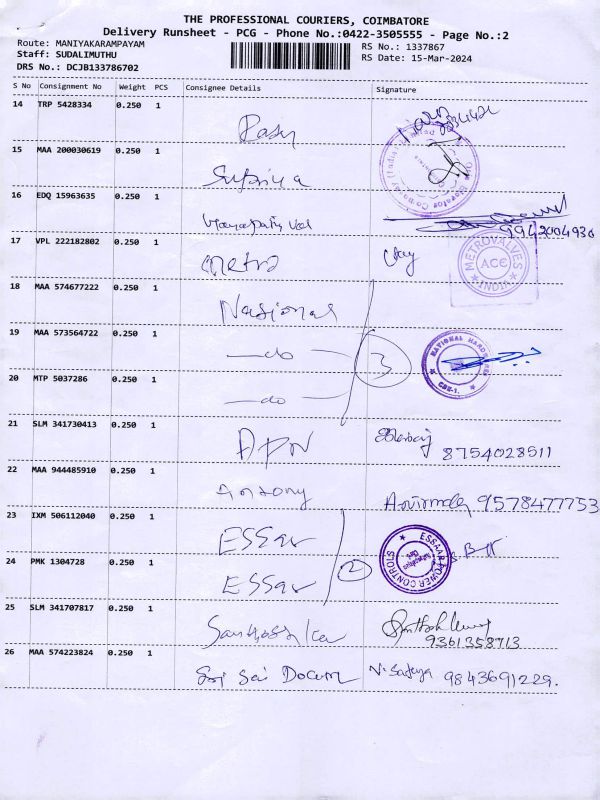 THE PROFESSIONAL COURIERS, COIMBATORE
Delivery Runsheet - PCG - Phone No.:0422-3505555 - Page No.:2
Route: MANIYAKARAMPAYAM
RS No.: 1337867
Staff: SUDALIMUTHU
RS Date: 15-Mar-2024
DRS No.: DCJB133786702
S No Consignment No Weight PCS Consignee Details Signature
14 TRP 5428334 0.250 1
15 MAA 200030619 0.250 1 Supriya
16 EDQ 15963635 0.250 1
9942004930
17 VPL 222182802 0.250 1 Metro
METROVALVES ACE INDIA
18 MAA 574677222 0.250 1 National
19 MAA 573564722 0.250 1 —do— 3
NATIONAL HARDWARE CBE-1.
20 MTP 5037286 0.250 1 —do—
21 SLM 341730413 0.250 1 APN
8754028511
22 MAA 944485910 0.250 1 Antony Anirmala 9578477753
23 IXM 506112040 0.250 1 ESSar
24 PMK 1304728 0.250 1 ESSar 2
ESSAAR POWER CONTROLS
25 SLM 341707817 0.250 1 Santhosh Kumar
9361358713
26 MAA 574223824 0.250 1 Sri Sai Docum N. Sathya 9843691229.